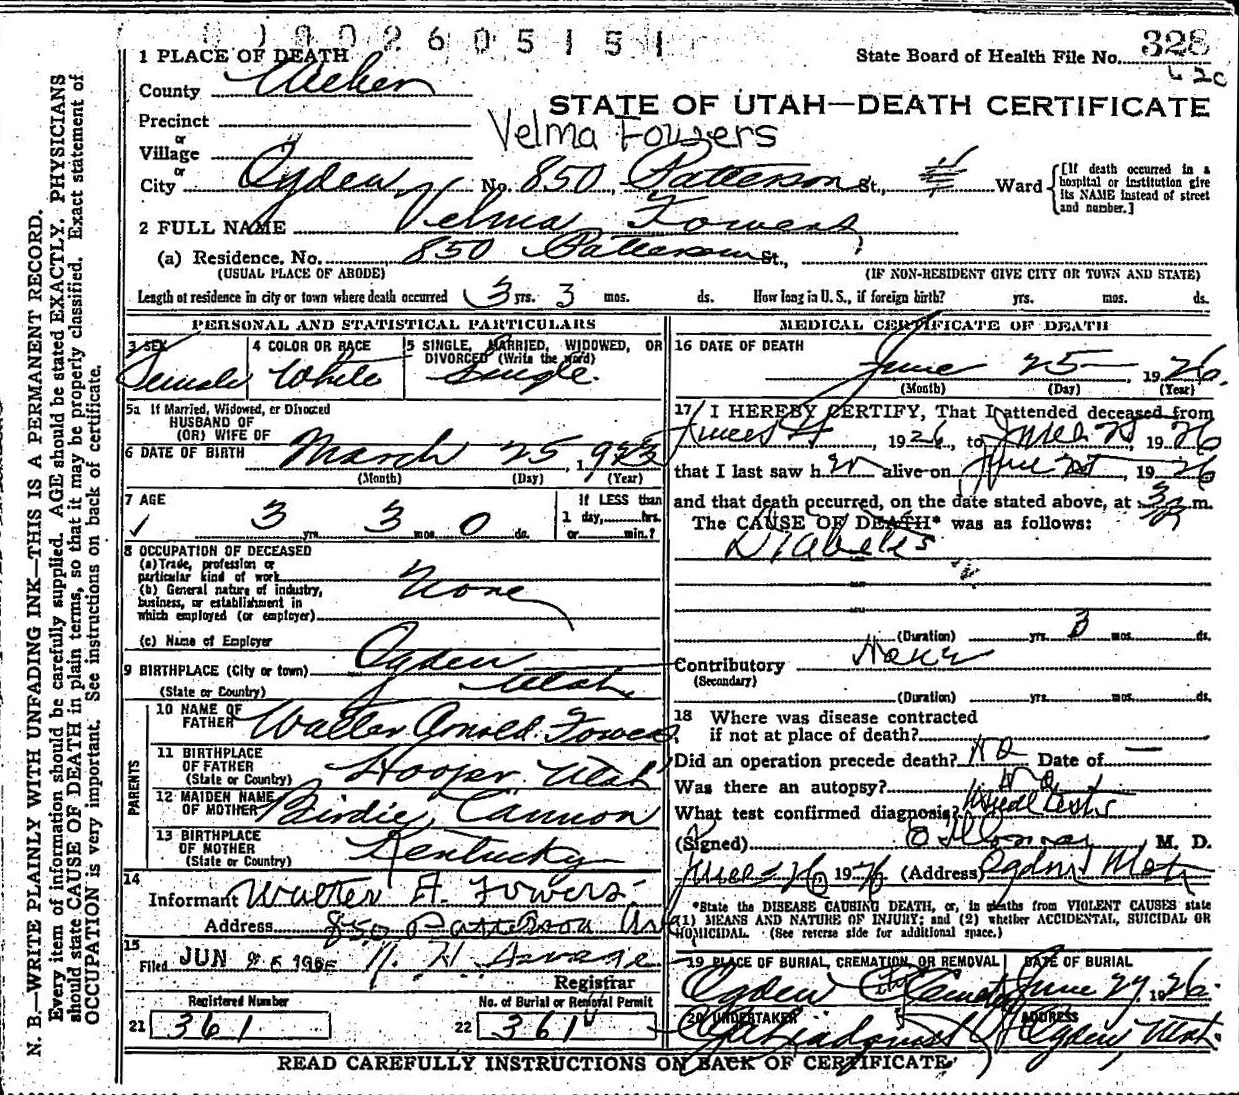 0 0 0 2 6 0 5 1 5 1
1 PLACE OF DEATH
State Board of Health File No. 328
62c
County Weber
STATE OF UTAH—DEATH CERTIFICATE
Precinct
Velma Fowers
or
Village
or
City Ogden No. 850 Patterson St., Ward
[If death occurred in a hospital or institution give its NAME instead of street and number.]
2 FULL NAME Velma Fowers
(a) Residence, No. 850 Patterson St.,
(USUAL PLACE OF ABODE) (IF NON-RESIDENT GIVE CITY OR TOWN AND STATE)
Length of residence in city or town where death occurred 3 yrs. 3 mos. ds. How long in U. S., if foreign birth? yrs. mos. ds.
PERSONAL AND STATISTICAL PARTICULARS
3 SEX
Female
4 COLOR OR RACE
White
5 SINGLE, MARRIED, WIDOWED, OR DIVORCED (Write the word)
Single.
5a If Married, Widowed, or Divorced
HUSBAND OF
(OR) WIFE OF
6 DATE OF BIRTH March 25, 1923
(Month) (Day) (Year)
7 AGE
3 yrs. 3 mos. 0 ds.
If LESS than
1 day, hrs.
or min.?
8 OCCUPATION OF DECEASED
(a) Trade, profession or
particular kind of work
None
(b) General nature of industry,
business, or establishment in
which employed (or employer)
(c) Name of Employer
9 BIRTHPLACE (City or town) Ogden
(State or Country) Utah
PARENTS
10 NAME OF FATHER Walter Arnold Fowers
11 BIRTHPLACE OF FATHER (State or Country) Hooper Utah
12 MAIDEN NAME OF MOTHER Birdie Cannon
13 BIRTHPLACE OF MOTHER (State or Country) Kentucky
14
Informant Walter A. Fowers
Address 850 Patterson
15
Filed JUN 26
Registrar
Registered Number
21 361
No. of Burial or Removal Permit
22 361
MEDICAL CERTIFICATE OF DEATH
16 DATE OF DEATH
June 25, 1926.
(Month) (Day) (Year)
17 I HEREBY CERTIFY, That I attended deceased from
June, 1926, to June 25 1926
that I last saw her alive on June 25, 1926
and that death occurred, on the date stated above, at 3 m.
The CAUSE OF DEATH* was as follows:
Diabetes
(Duration) yrs. 3 mos. ds.
Contributory None
(Secondary)
(Duration) yrs. mos. ds.
18 Where was disease contracted
if not at place of death?
Did an operation precede death? No Date of —
Was there an autopsy? no
What test confirmed diagnosis? tests
(Signed) M. D.
June 26 1926 (Address) Ogden Utah
*State the DISEASE CAUSING DEATH, or, in deaths from VIOLENT CAUSES state
(1) MEANS AND NATURE OF INJURY; and (2) whether ACCIDENTAL, SUICIDAL OR
HOMICIDAL. (See reverse side for additional space.)
19 PLACE OF BURIAL, CREMATION, OR REMOVAL
Ogden City Cemetery
DATE OF BURIAL
June 27, 1926.
20 UNDERTAKER
ADDRESS
Ogden, Utah.
READ CAREFULLY INSTRUCTIONS ON BACK OF CERTIFICATE
N. B.—WRITE PLAINLY WITH UNFADING INK—THIS IS A PERMANENT RECORD.
Every item of information should be carefully supplied. AGE should be stated EXACTLY. PHYSICIANS
should state CAUSE OF DEATH in plain terms, so that it may be properly classified. Exact statement of
OCCUPATION is very important. See instructions on back of certificate.